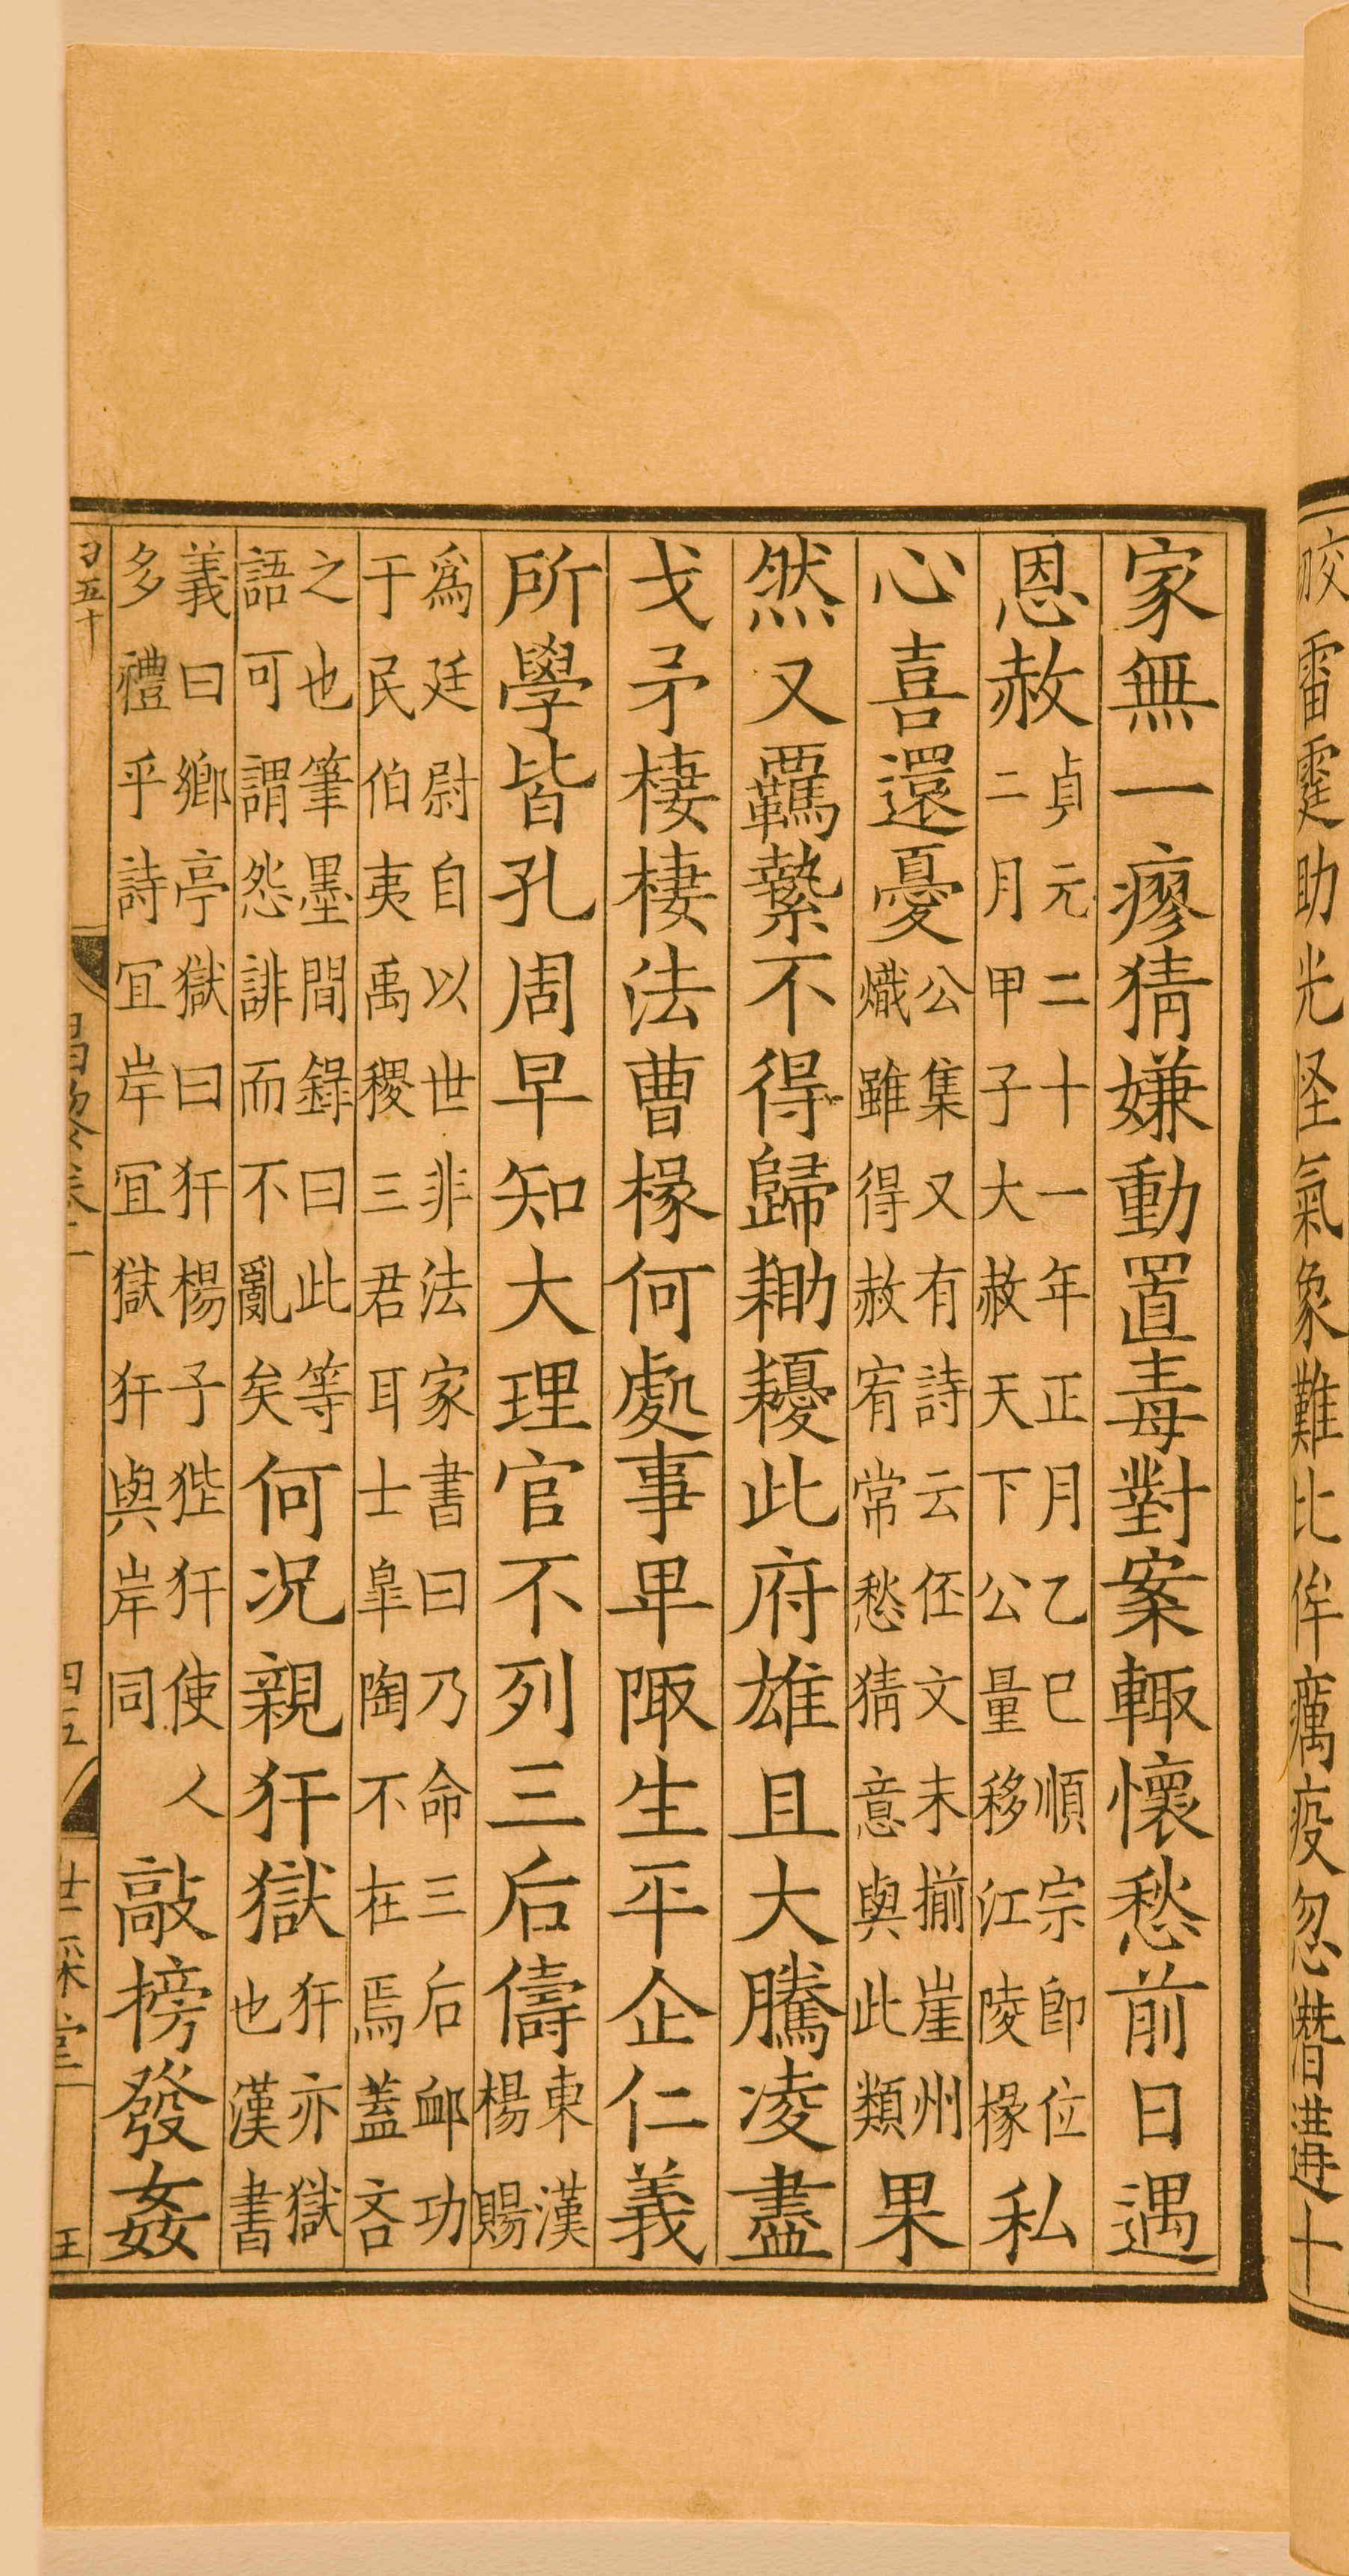 皎雷霆助光怪氣象難比侔癘疫忽潛遘十
家無一瘳猜嫌動置毒對案輒懷愁前日遇
恩赦貞元二十一年正月乙巳順宗卽位二月甲子大赦天下公量移江陵掾私
心喜還憂公集又有詩云伾文未揃崖州熾雖得赦宥常愁猜意與此類果
然又羈縶不得歸耡耰此府雄且大騰凌盡
戈矛棲棲法曹掾何處事卑陬生平企仁義
所學皆孔周早知大理官不列三后儔東漢楊賜
爲廷尉自以世非法家書曰乃命三后卹功于民伯夷禹稷三君耳士皐陶不在焉蓋吝
之也筆墨間錄曰此等語可謂怨誹而不亂矣何况親犴獄犴亦獄也漢書
義曰鄉亭獄曰犴楊子狴犴使人多禮乎詩宜岸宜獄犴與岸同敲搒發姦
昌黎集二
世綵堂
王